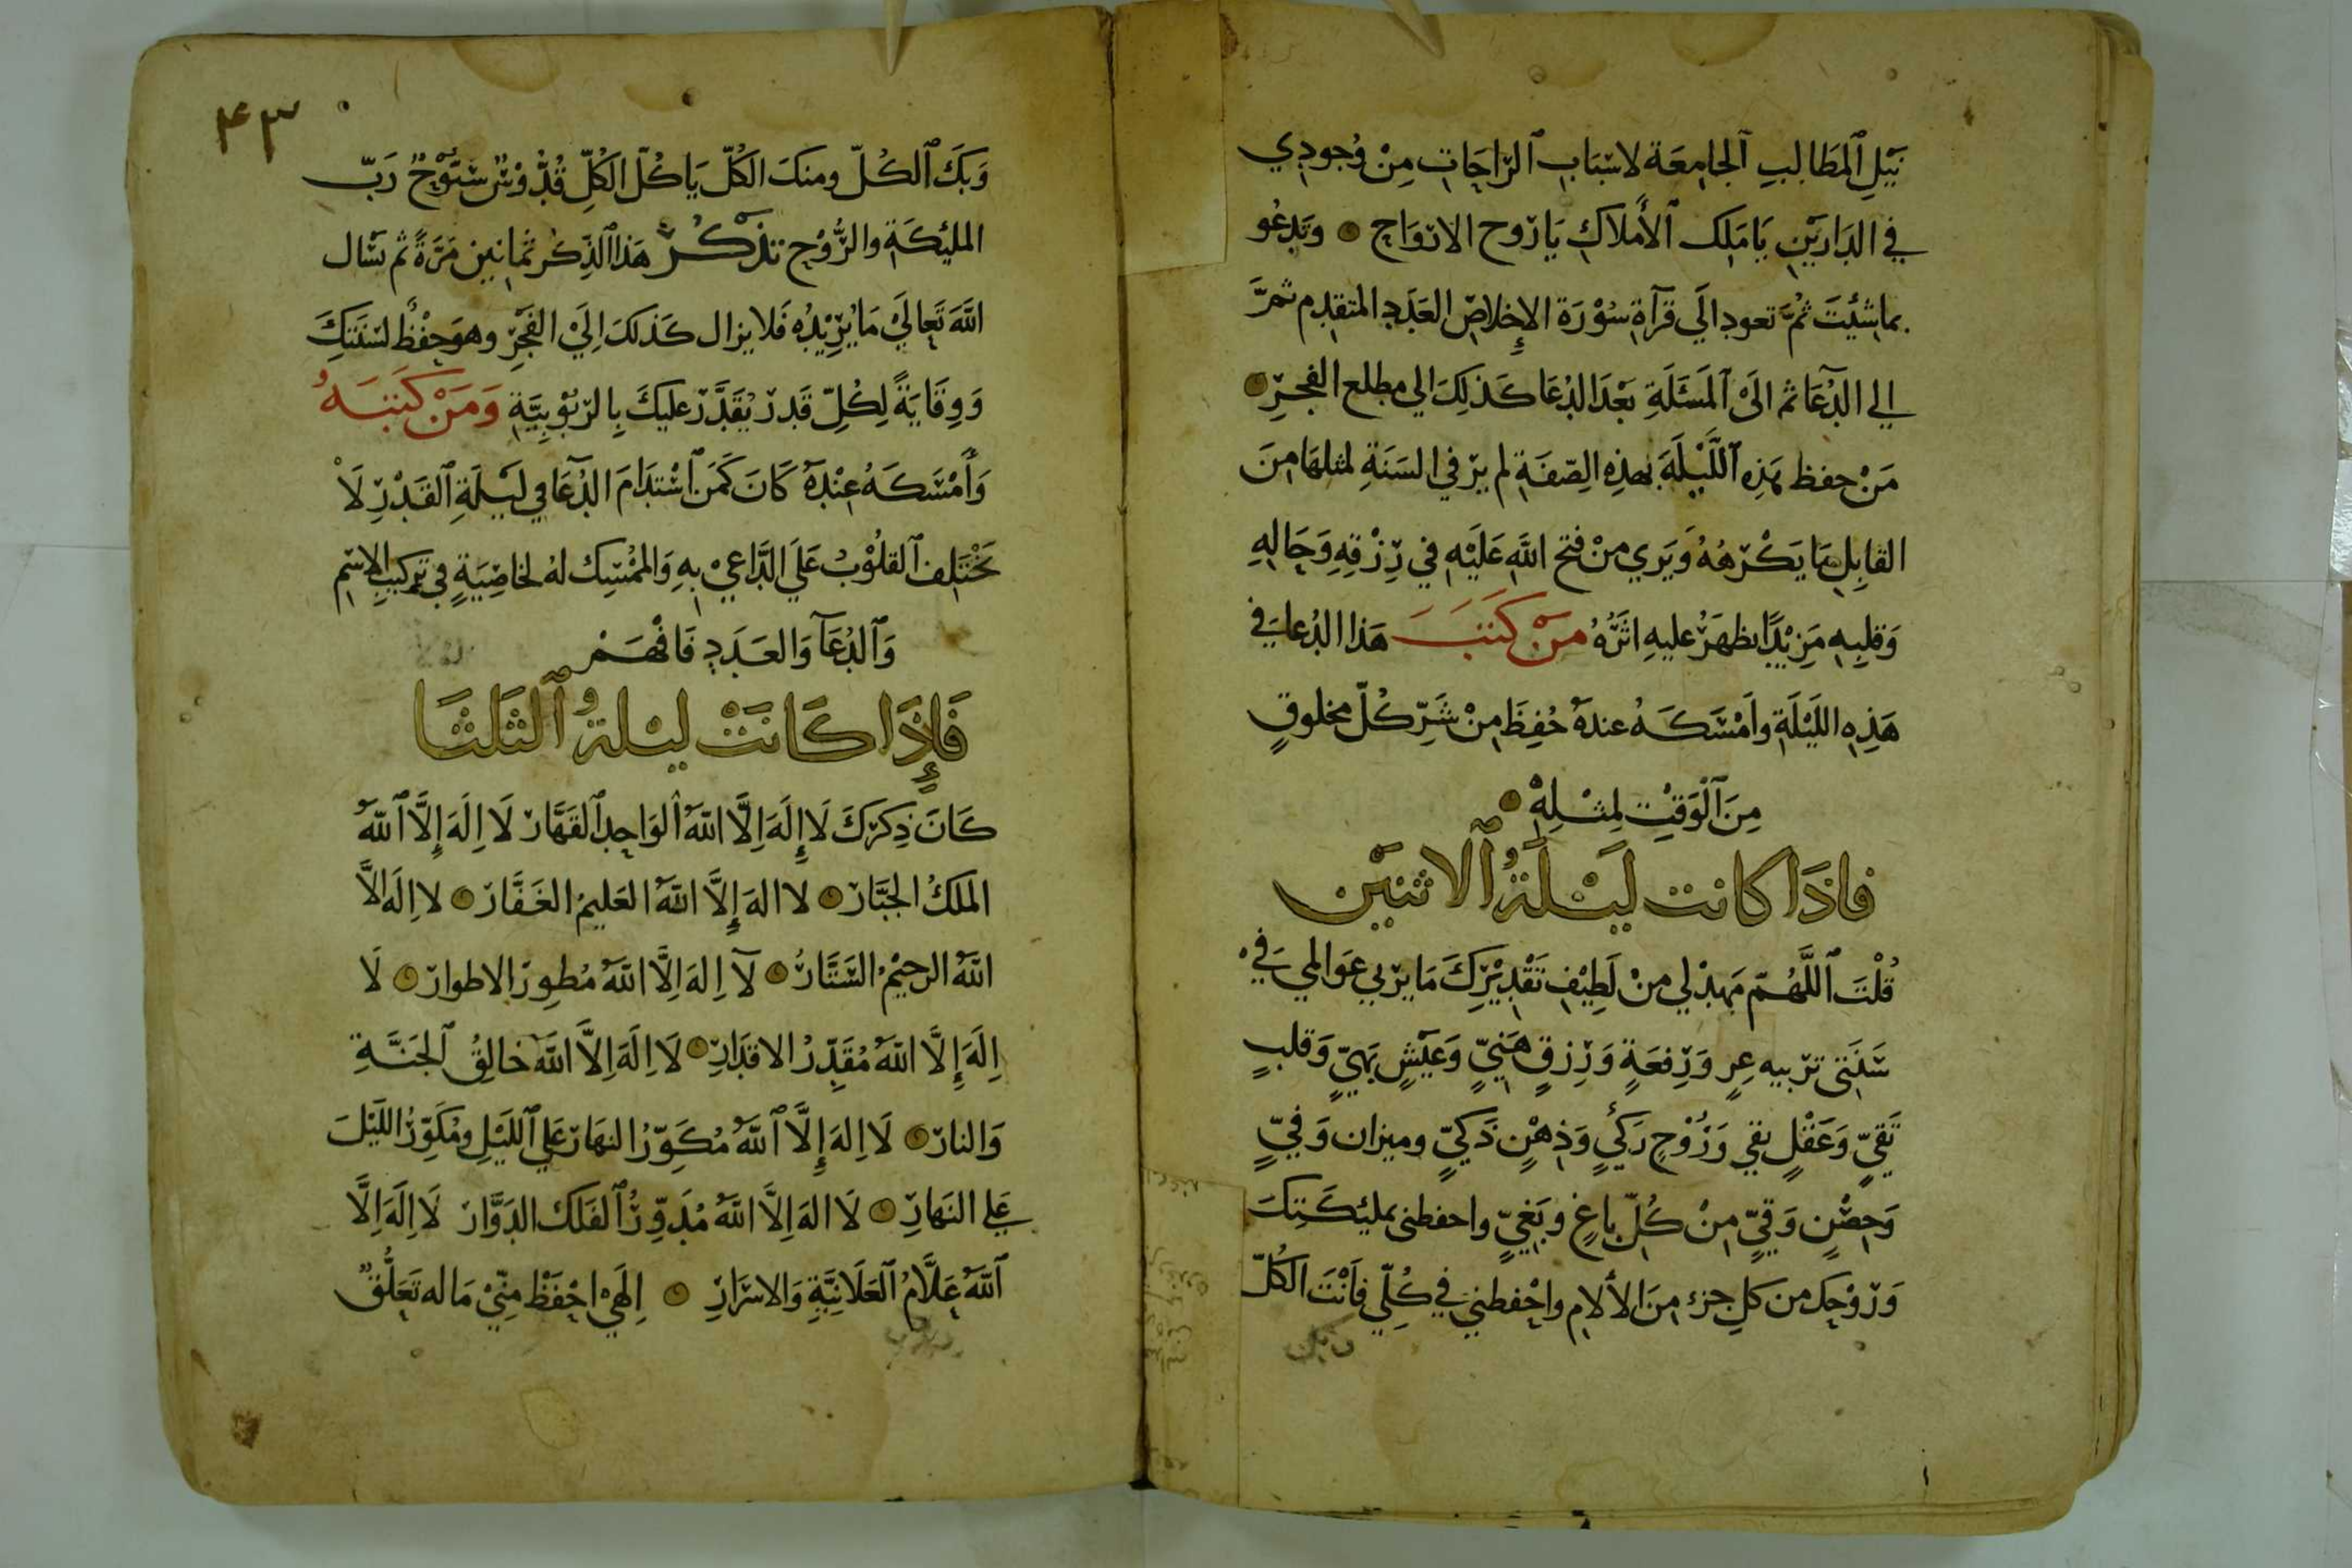 نَيْلِ ٱلمَطَالِبِ ٱلجَامِعَة لاسْبَابِ ٱلرَاحَاتِ مِنْ وُجودِي
فِي الدَارَيْنِ يَا مَلِك ٱلأَمْلاكِ يَا رُوح الارْوَاحِ وَتَدعُو
بماشِئتَ ثُمَّ تعود الَى قرآةِ سُوْرَة الإِخلاصِ العَدَدِ المتقدِم ثمرَّ
الي الدُعَا ثم الَىْ ٱلمَسْئَلَةِ بَعْدَ الدُعَا كَذلِكَ الي مطلع الفجرِ
مَنْ حفظ هَذِهِ ٱللَّيْلَةَ بهذِهِ الصِّفَةِ لم يرَ في السَنَةِ لمثلهَا مِنَ
القابِلِ مَا يَكْرَهُهُ وَيَرَي مِنْ فتح اللَّهِ عَلَيْهِ في رِزْقِهِ وَحَالِهِ
وَقلبِهِ مَزِيْدًا يظهَرُ عليهِ اثرُهُ مَنْ كَتَبَ هَذا الدُعا في
هَذِهِ اللَيْلَةِ وامْسَكَهُ عندهُ حُفِظَ مِنْ شَرِّ كُلّ مخلوقٍ
مِنَ ٱلْوَقْتِ لِمثْلِهِ
فاذَا كانت لَيْلَةُ ٱلاثنَيْن
قُلْتَ ٱللَّهُمّ مَهِدْ لي مِنْ لَطِيْفِ تَقْدِيْرِكَ مَا يرَبي عَوَالمي في
سَنَتى تربيه عِزٍ وَرِفعَةٍ وَرِزقٍ هَنِيّ وَعَيْشٍ بَهيٍّ وَقلبٍ
تَقيٍّ وَعَقْلٍ نقي وَرُوْحٍ زَكيٍ وَذِهْنٍ ذَكيٍّ وميزان وَفيٍّ
وَحِصْنٍ وَقيٍّ مِنْ كُلّ باغٍ وبَغيٍّ واحفظنى بمليئكَتِكَ
وَرُوْحِك من كلِ جزءٍ مِنَ الألامِ واحْفظني فِي كُلِّي فأَنْتَ الكُلّ
۴۳
وَبكَ ٱلكُلّ ومنكَ الكُلّ يَا كُلّ الكُلِّ قُدُّوْسٌ سَبُّوْحٌ رَبّ
المليئكَةِ والرُّوْحِ تذكُرُ هَذا الذِكرُ ثمانِين مَرَةً ثم تسْال
اللَّهَ تَعالَيْ مَا يُرِيْدُهُ فَلا يزال كَذلكَ اِلَيْ الفَجْرِ وهوَ حِفْظٌ لسَنَتكَ
وَوِقَايَةً لِكُلِّ قَدرٍ يُقَدَّرُ عليكَ بِالرّبُوْبِيَّةِ وَمَنْ كَتَبَهُ
وَأَمْسَكَهُ عِنْدهُ كَانَ كَمَن ٱسْتَدَامَ الدُعَا في لَيْلَةِ ٱلقَدْرِ لَا
تَخْتَلِف ٱلقلُوْبُ عَلَي الدَّاعِي بِهِ وَالممْسِك لهُ لخاصِيَةٍ في تركيب الاسْمِ
وَٱلدُعَآ وَالعَدَدِ فَافْهَمْ
فَإِذَا كَانَتْ ليْلةُ ٱلثَلَثَا
كَانَ ذِكرُكَ لَا إِلَهَ اِلَّا اللَّهُ ٱلوَاحِد ٱلقَهَّارُ لَا اِلَهَ إِلَّا ٱللَّهُ
المَلكُ الجَبَّارُ لا اله إِلَّا اللَّهُ العَليمُ الغَفَّارُ لا اِلَه الاَّ
اللَّهُ الرحِيْمُ السَتَّارُ لآ اِلهَ اِلَّا اللَّهُ مُطوِرُ الاطوارِ لَا
اِلَهَ إِلَّا اللَّهُ مُقَدِّرُ الاقدَارِ لَا اِلَهَ اِلاَّ اللَّهُ خالِقُ ٱلجَنَّةِ
وَالنارِ لَا اِلهَ إِلَّا ٱللَّهُ مُكَوِّرُ النهَار عَلي ٱللَيْلِ ومُكَوِّرُ اللَيْلَ
عَلي النَهارِ لَا الهَ اِلاَّ اللَّهُ مُدَوِّرُ ٱلفَلَك الدَوَّار لَا اِلَهَ اِلَّا
ٱللَّهُ عَلَّامُ ٱلعَلَانِيَّةِ وَالاسْرَارِ اِلَهِيْ احْفَظْ مِنّيْ مَا له تَعَلُّقٌ